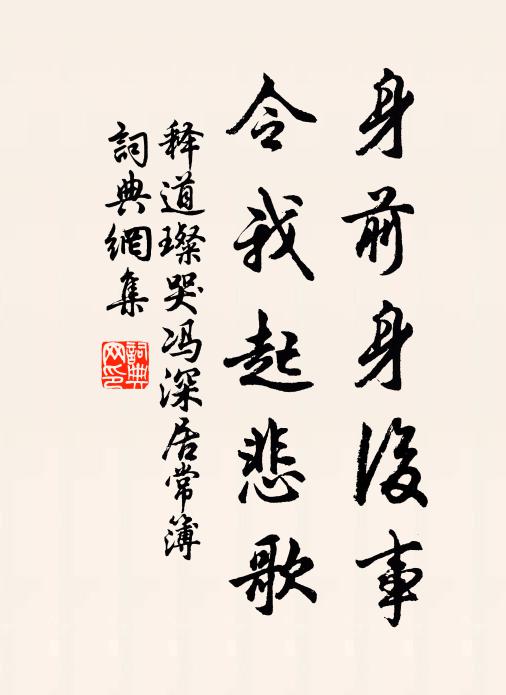 身前身後事
令我起悲歌
释道璨哭冯深居常簿
詞典網集
詞典网印